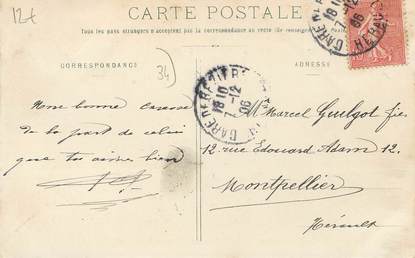 12t
CARTE POSTALE
Tous les pays étrangers n'acceptent pas la correspondance au verso (Se renseigner
CORRESPONDANCE
ADRESSE
34
18 10
7-12
06
HERAULT
GARE DE
18 10
7-12
06
Une bonne caresse
de la part de celui
que tu aimes bien
Mr Marcel Guilgot fils
12 rue Edouard Adam 12.
Montpellier
Hérault